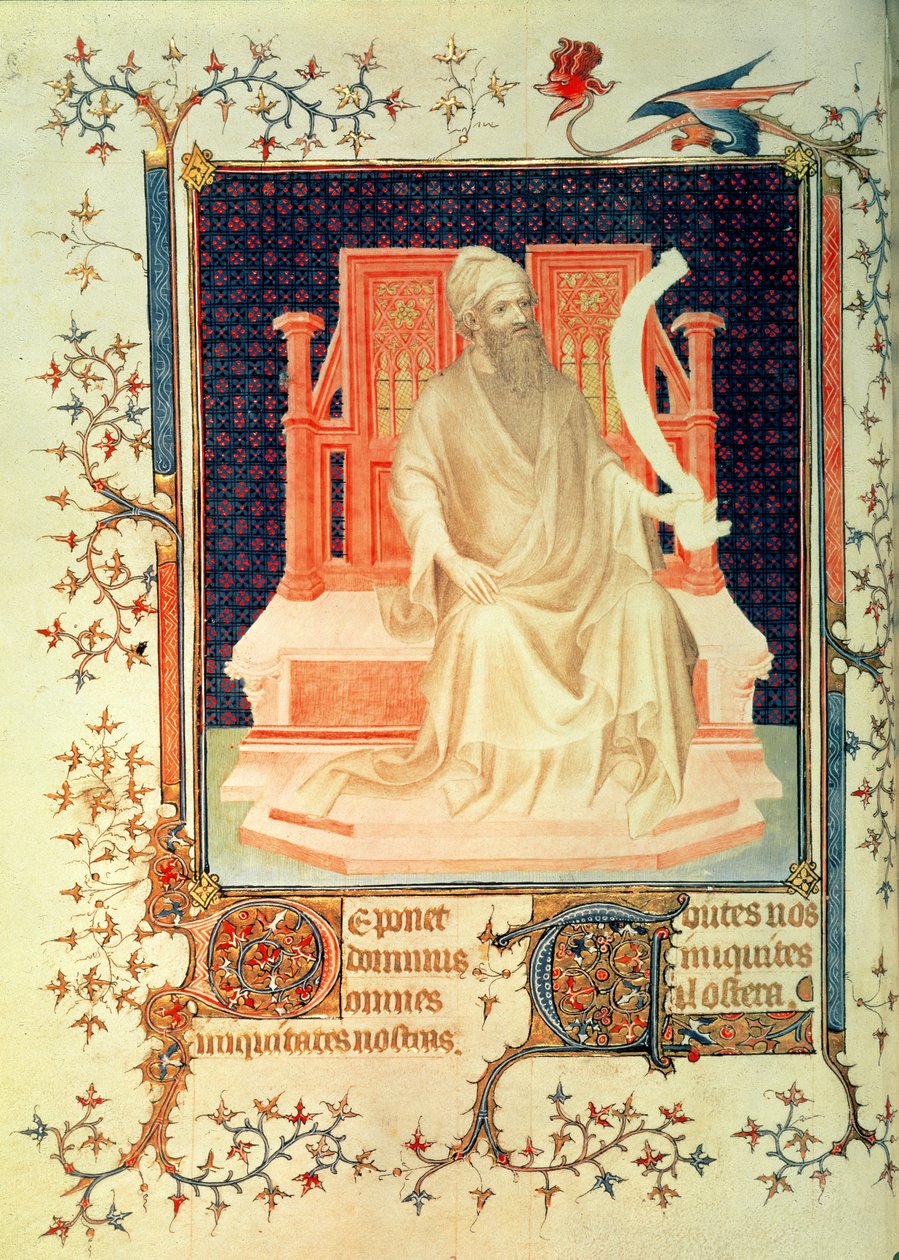 Deponet
dominus
omnes
iniquitates nostras.
Toutes nos
iniquites
il ostera.